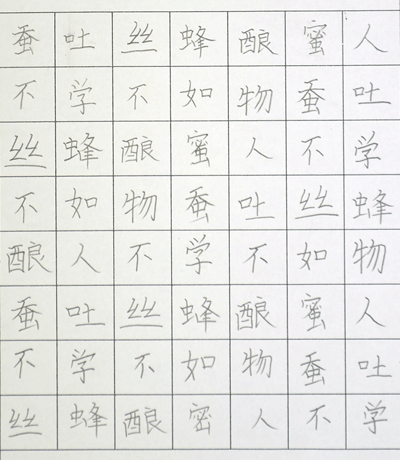 蚕吐丝蜂酿蜜人
不学不如物蚕吐
丝蜂酿蜜人不学
不如物蚕吐丝蜂
酿人不学不如物
蚕吐丝蜂酿蜜人
不学不如物蚕吐
丝蜂酿密人不学